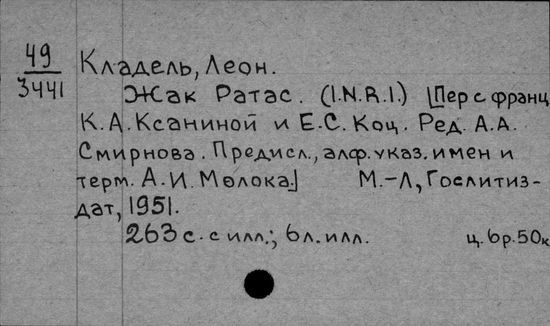 49
3441
Кладель, Леон.
Жак Ратас. (I.N.R.I.) [Пер с франц
К.А.Ксаниной и Е.С.Коц. Ред. А.А.
Смирнова. Предисл., алф.указ.имен и
терм. А.И.Молока.] М.-Л, Гослитиз-
дат, 1951.
263 с. с илл.; 6л.илл. ц. 6р.50к